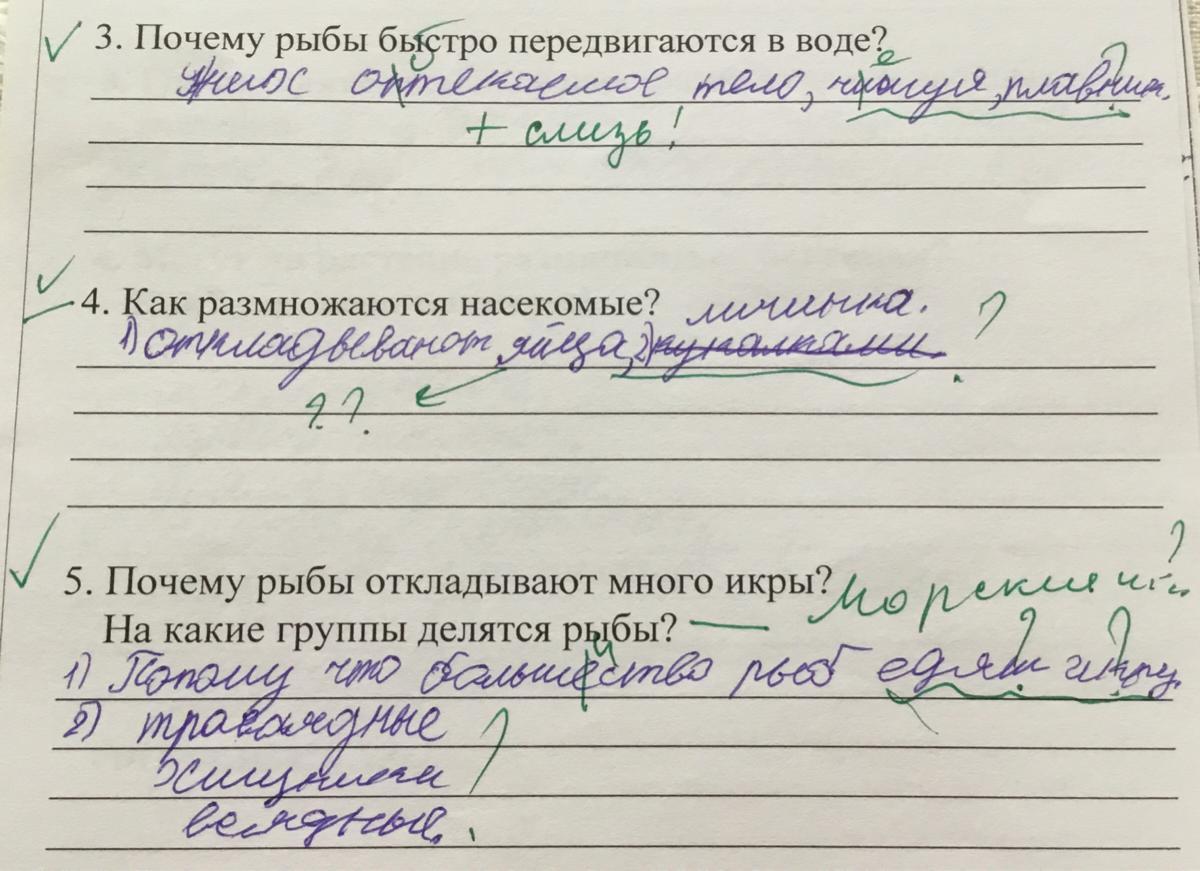 3. Почему рыбы быстро передвигаются в воде?
оптекаемое тело, чишуя, плавники.
+ слизь!
4. Как размножаются насекомые? личинка. ?
1) откладывают яйца, 2) куколками.
??.
5. Почему рыбы откладывают много икры?
На какие группы делятся рыбы? — Морские и ?
1) Потому что большество рыб едят икру
2) травоядные ?
хищники
всеядные.